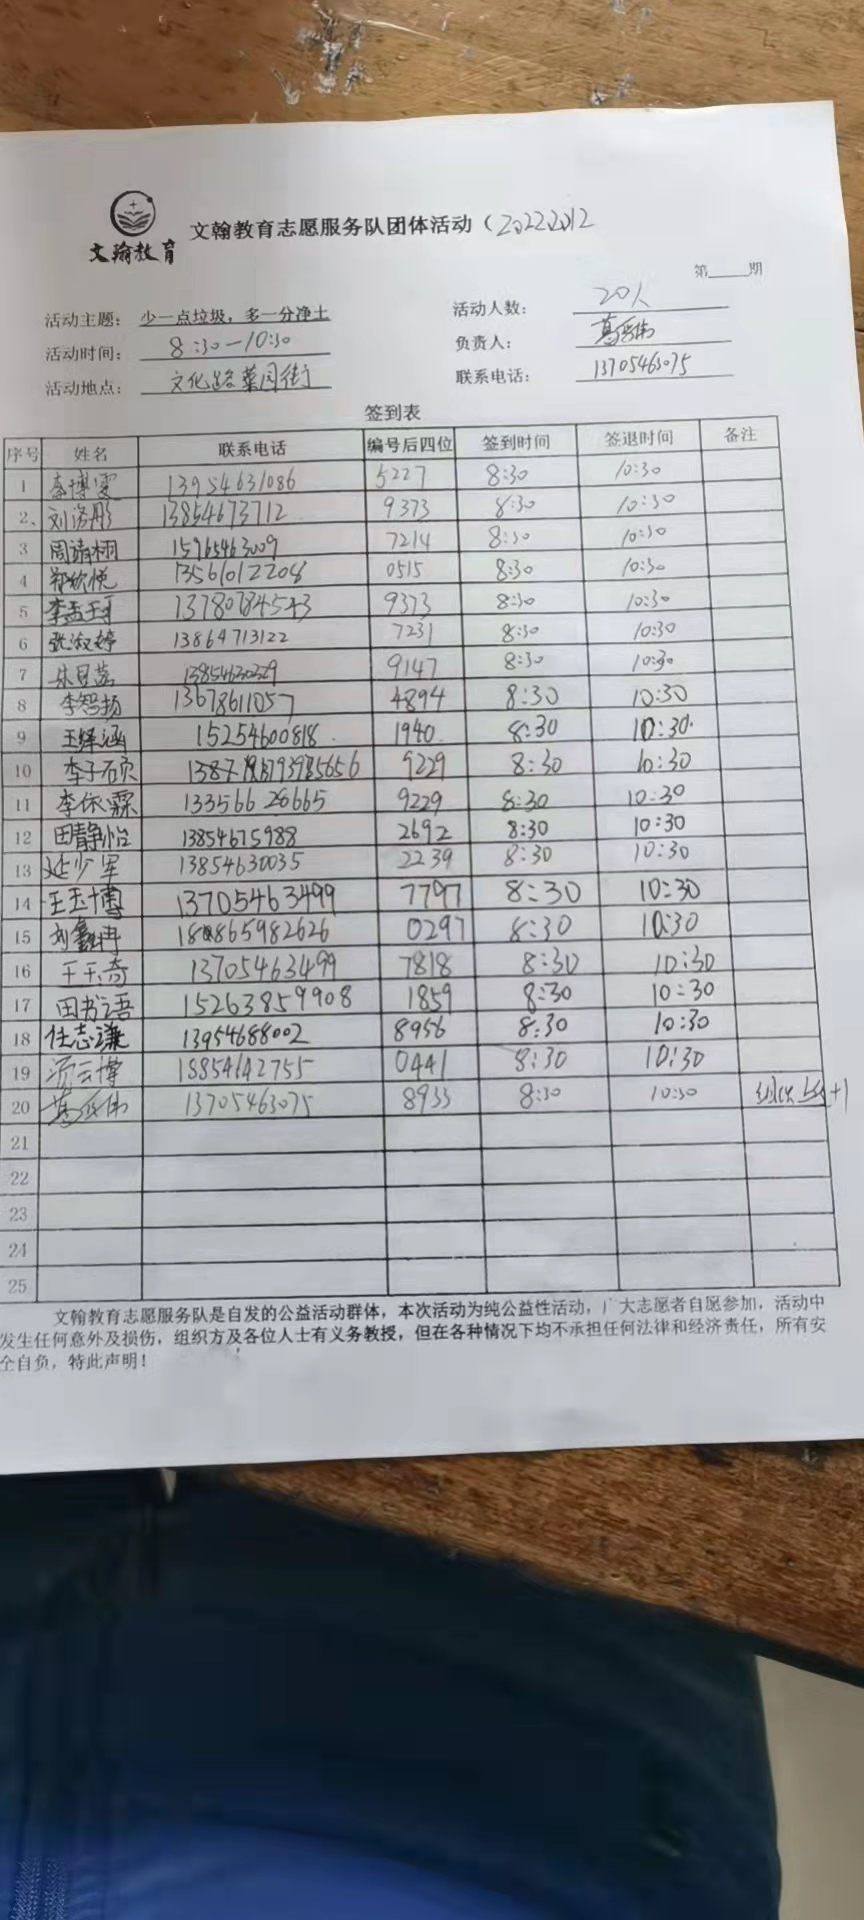 文翰教育
文翰教育志愿服务队团体活动（
第____期
活动主题：少一点垃圾，多一分净土 活动人数：20人
活动时间：8:30—10:30 负责人：
活动地点：文化路菜园街 联系电话：13705463075
签到表
序号 姓名 联系电话 编号后四位 签到时间 签退时间 备注
1 李博雯 13954631086 5227 8:30 10:30
2、 刘洛彤 13854673712 9373 8:30 10:30
3 15965463009 7214 8:30 10:30
4 郑欣悦 13561012208 0515 8:30 10:30
5 13780784543 9373 8:30 10:30
6 张淑婷 13864713122 7231 8:30 10:30
7 9147 8:30 10:30
8 李智扬 13678611057 4894 8:30 10:30
9 王绎涵 15254600818 1940 8:30 10:30
10 李子硕 9229 8:30 10:30
11 李依霖 13356626665 9229 8:30 10:30
12 田静怡 13854675988 2692 8:30 10:30
13 延少军 13854630035 2239 8:30 10:30
14 王玉博 13705463499 7797 8:30 10:30
15 刘鑫冉 0297 8:30 10:30
16 王玉奇 13705463499 7818 8:30 10:30
17 田书语 15263859908 1859 8:30 10:30
18 任志谦 13954688002 8956 8:30 10:30
19 0441 8:30 10:30
20 13705463075 8933 8:30 10:30
21
22
23
24
25
文翰教育志愿服务队是自发的公益活动群体，本次活动为纯公益性活动，广大志愿者自愿参加，活动中
发生任何意外及损伤，组织方及各位人士有义务教授，但在各种情况下均不承担任何法律和经济责任，所有安
全自负，特此声明！